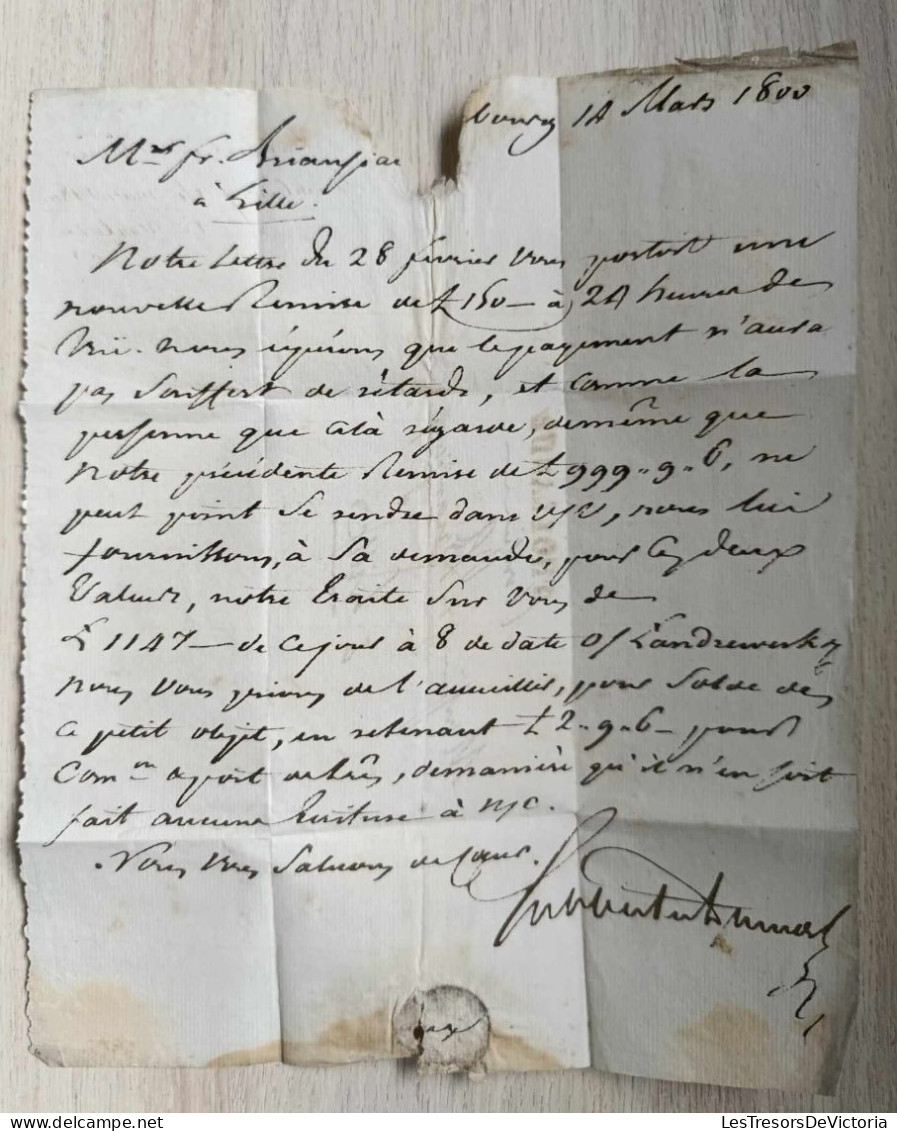 bourg 14 Mars 1800
Mr. fr. Briansiau
à Lille.
Notre Lettre du 28 février vous portoit une
nouvelle Remise de £ 150 — à 24 heures de
Vüe. nous éspérons que le payement n'aura
pas Souffert de rétards, et comme la
personne que celà régarde, demême que
notre précédente Remise de £ 999 " 9 " 6, ne
peut point Se rendre dans V/V, nous lui
fournissons, à Sa demande, pour Ces deux
Valeurs, notre traite Sur vous de
£ 1147 — de ce jour à 8 de date o/
nous vous prions de l'accueillir, pour Solde de
ce petit objet, en retenant £ 2 " 9 " 6 — pour
Comon & port de Lrês, demanière qu'il n'en soit
fait aucune Ecriture à n/c.
Nous Vous Saluons de Coeur.
LesTresorsDeVictoria